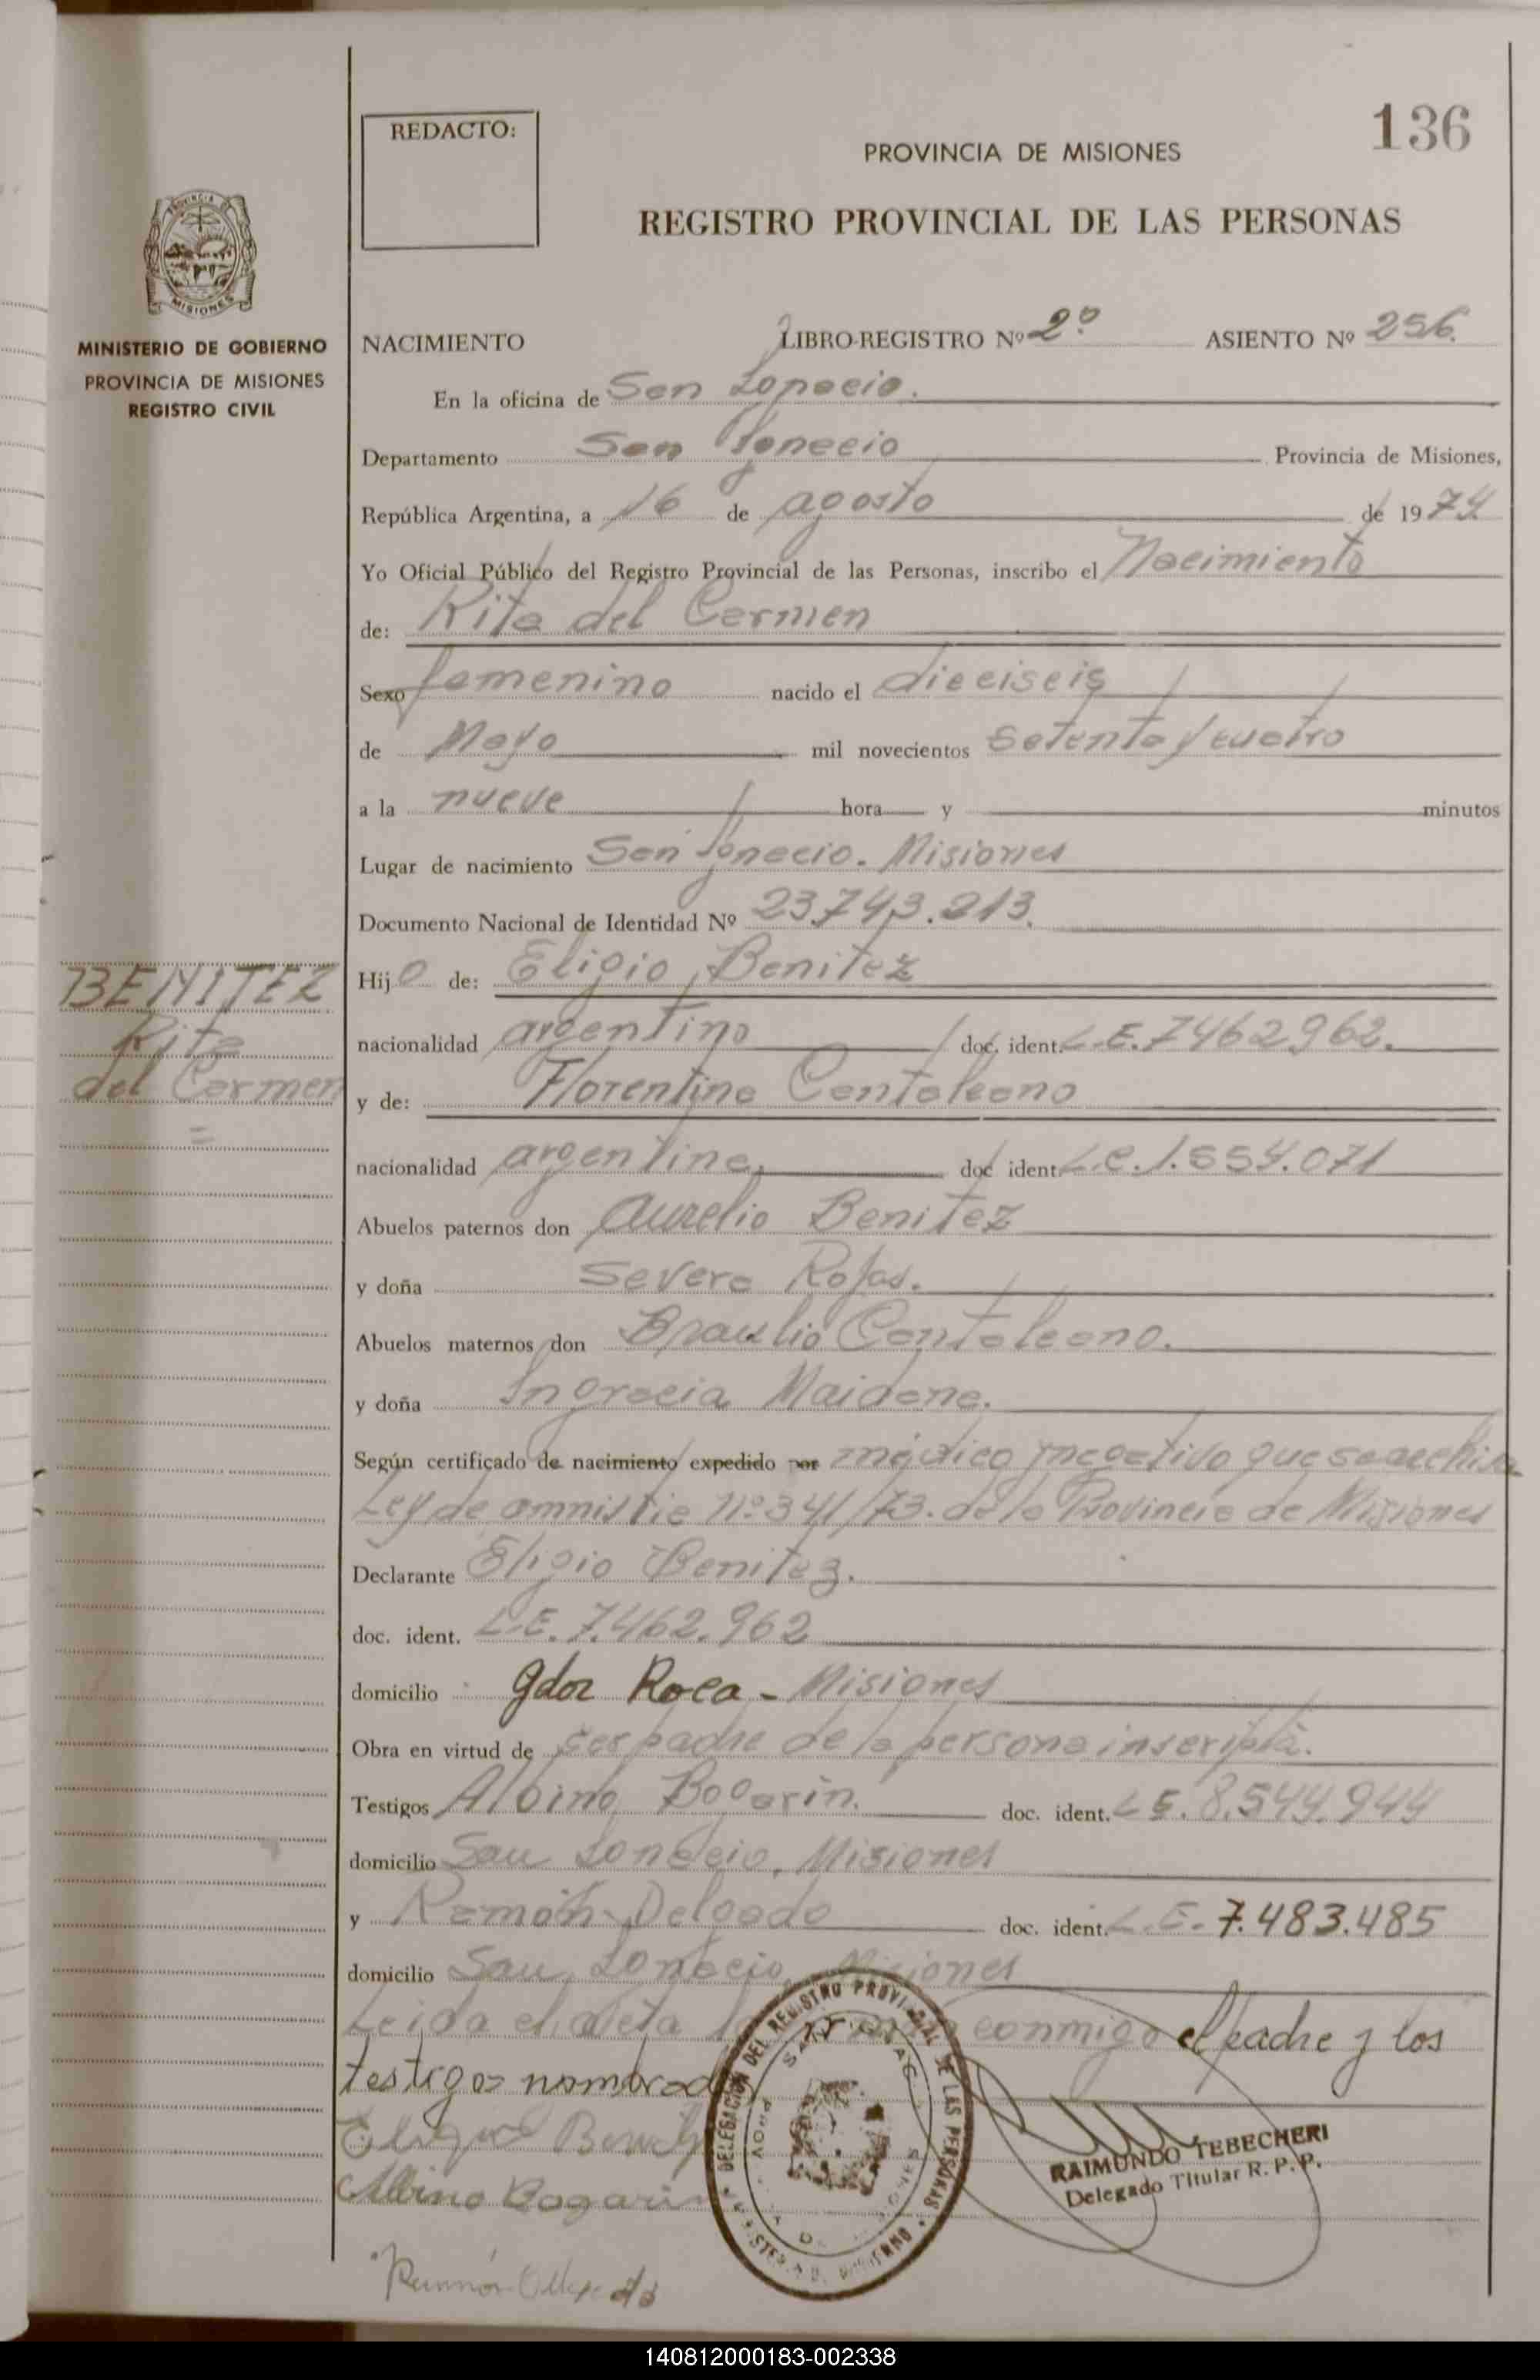 136
REDACTO:
PROVINCIA DE MISIONES
REGISTRO PROVINCIAL DE LAS PERSONAS
PROVINCIA DE
MISIONES
MINISTERIO DE GOBIERNO
PROVINCIA DE MISIONES
REGISTRO CIVIL
NACIMIENTO LIBRO-REGISTRO Nº 2º ASIENTO Nº 256.
En la oficina de San Ignacio.
Departamento San Ignacio Provincia de Misiones,
República Argentina, a 16 de agosto de 1974
Yo Oficial Público del Registro Provincial de las Personas, inscribo el Nacimiento
de: Rita del Carmen
Sexo femenino nacido el dieciseis
de Mayo mil novecientos setenta y cuatro
a la nueve hora y minutos
Lugar de nacimiento San Ignacio. Misiones
Documento Nacional de Identidad Nº 23.743.213.
BENITEZ
Rita
del Carmen
=
Hijo de: Eligio Benitez
nacionalidad argentino doc. ident. L.E. 7462962.
y de: Florentina Cantaleano
nacionalidad argentina, doc ident. L.C. 1.554.071
Abuelos paternos don Aurelio Benitez
y doña Severa Rojas.
Abuelos maternos don Braulio Cantaleano.
y doña Ingracia Maidana.
Según certificado de nacimiento expedido por médico negativo que se archiva
Ley de amnistia nº 341/73. de la Provincia de Misiones
Declarante Eligio Benitez.
doc. ident. L.E. 7.462.962
domicilio Gdor Roca - Misiones
Obra en virtud de ser padre de la persona inscripta.
Testigos Albino Bogarin. doc. ident. L E. 8.544.944
domicilio San Ignacio, Misiones
y Ramón Delgado doc. ident. L.E. 7.483.485
domicilio San Ignacio Misiones
Leida el acta la firman conmigo el padre y los
testigos nombrados
DELEGACION DEL REGISTRO PROVINCIAL DE LAS PERSONAS
RAIMUNDO TEBECHERI
Delegado Titular R. P. P.
Albino Bogarin
140812000183-002338